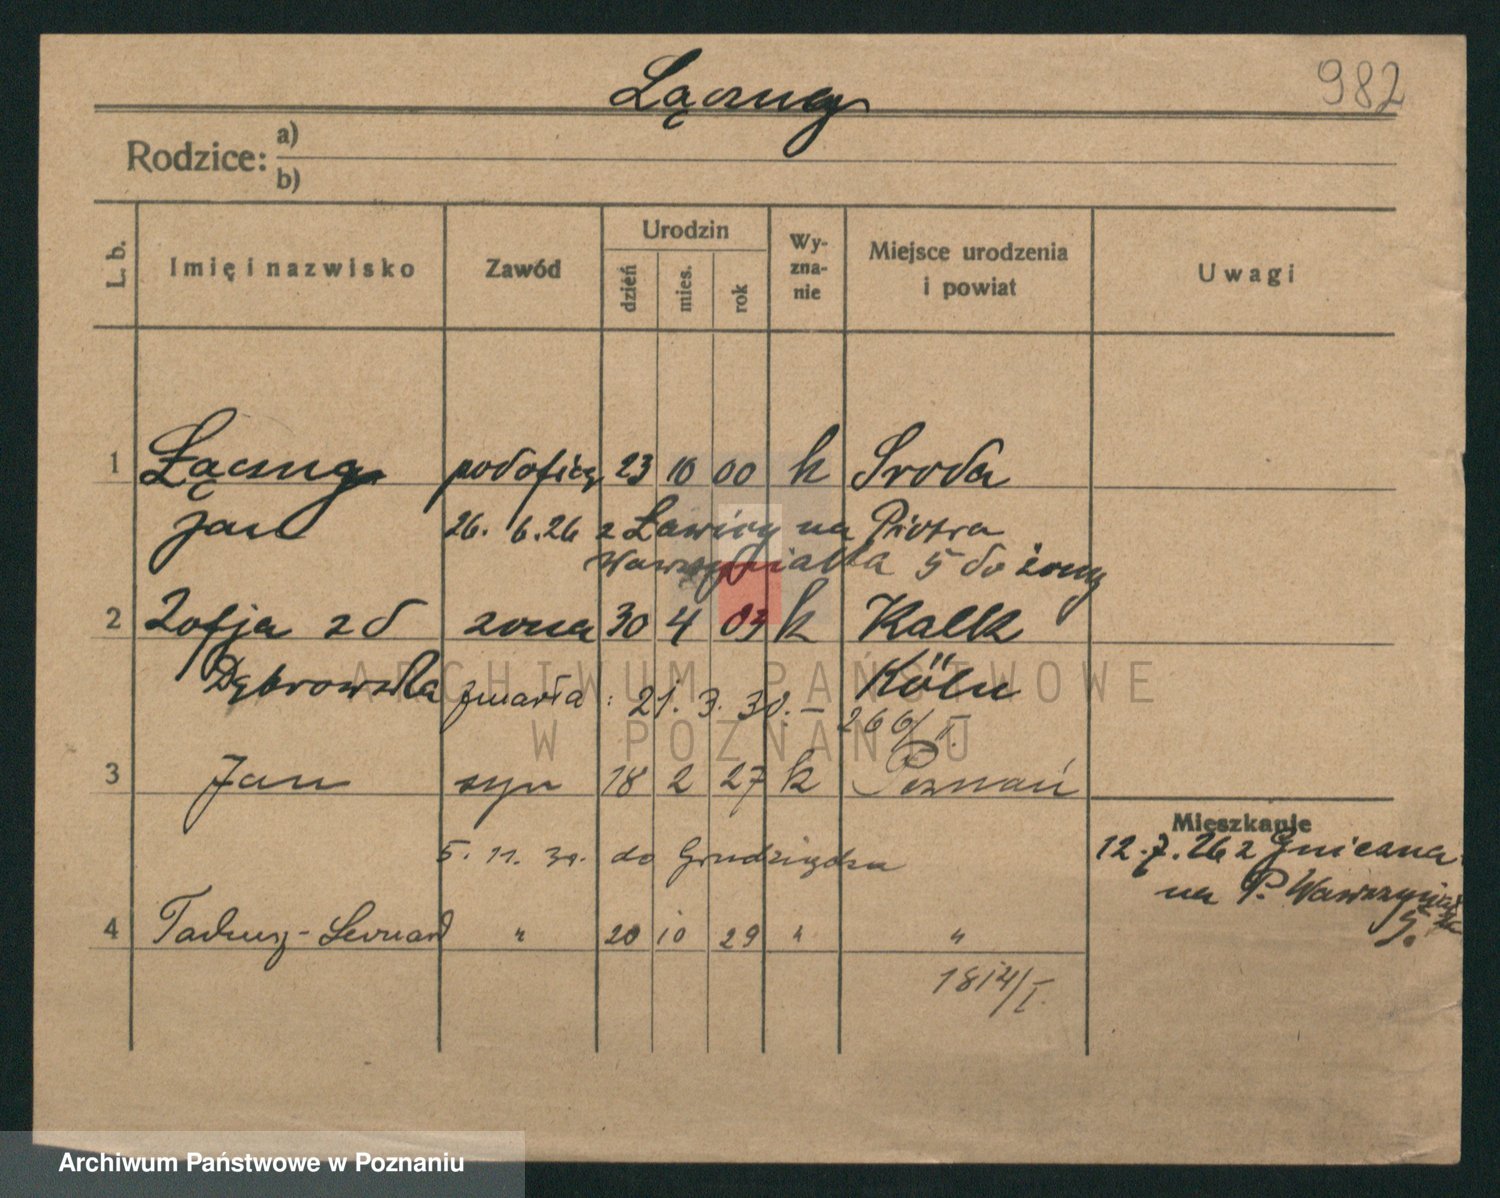 Łączny
982
Rodzice: a)
b)
L. b.
Imię i nazwisko
Zawód
Urodzin
dzień
mies.
rok
Wy-
zna-
nie
Miejsce urodzenia
i powiat
Uwagi
1 Łączny podofic. 23 10 00 k Środa
Jan 26. 6. 26 z Ławicy na Piotra
Wawrzyniaka 5 do żony
2 Zofja z d żona 30 4 03 k Kalk
Dąbrowska zmarła : 21. 3. 30. – Köln
266/I.
3 Jan syn 18 2 27 k Poznań
Mieszkanie
5. 11. 30. do Grudziądza
12. 7. 26 z Gniezna
na P. Wawrzyniaka
5.
4 Tadeusz-Leonard " 20 10 29 " "
1814/I.
ARCHIWUM PAŃSTWOWE
W POZNANIU
Archiwum Państwowe w Poznaniu